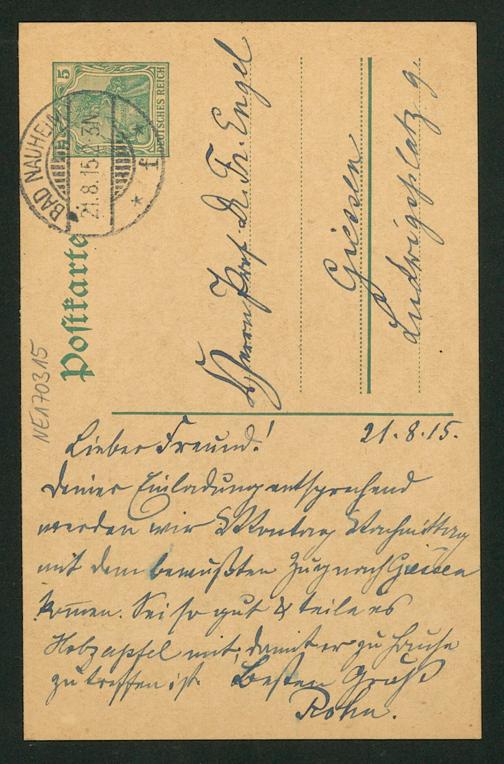 Postkarte
5
DEUTSCHES REICH
BAD NAUHEIM
21.8.15. 2-3N.
* f *
Herrn Prof. Dr. Fr. Engel
Giessen
Ludwigsplatz 9.
NE170315
21.8.15.
Lieber Freund!
Deiner Einladung entsprechend
werden wir Montag Nachmittag
mit dem bewußten Zug nach Giessen
kommen. Sei so gut & teile es
Holzapfel mit, damit er zu Hause
zu treffen ist. Besten Gruß
Rohn.